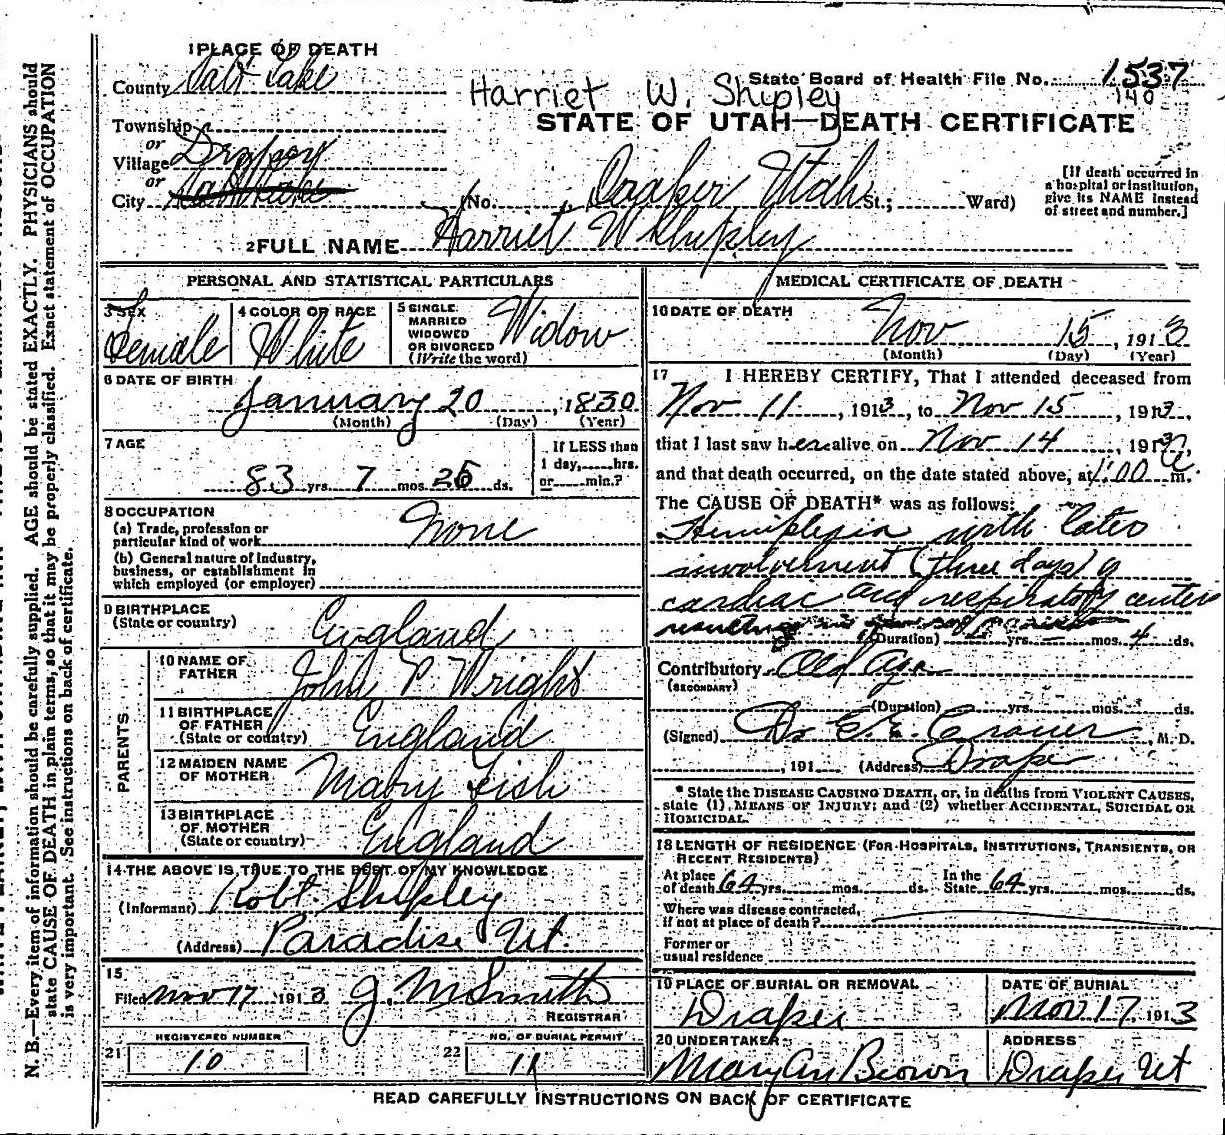 1 PLACE OF DEATH
County Salt Lake
State Board of Health File No. 1537
140
Harriet W. Shipley
STATE OF UTAH—DEATH CERTIFICATE
Township
or
Village Draper
or
City Salt Lake
(No. Draper, Utah St.; Ward)
[If death occurred in a hospital or institution, give its NAME instead of street and number.]
2 FULL NAME Harriet W Shipley
PERSONAL AND STATISTICAL PARTICULARS
3 SEX
Female
4 COLOR OR RACE
White
5 SINGLE. MARRIED WIDOWED OR DIVORCED (Write the word)
Widow
6 DATE OF BIRTH
January 20, 1830
(Month) (Day) (Year)
7 AGE
83 yrs. 7 mos. 26 ds.
If LESS than 1 day, hrs. or min.?
8 OCCUPATION
(a) Trade, profession or particular kind of work
None
(b) General nature of industry, business, or establishment in which employed (or employer)
9 BIRTHPLACE
(State or country)
England
PARENTS
10 NAME OF FATHER
John P Wright
11 BIRTHPLACE OF FATHER (State or country)
England
12 MAIDEN NAME OF MOTHER
Mary Fish
13 BIRTHPLACE OF MOTHER (State or country)
England
14 THE ABOVE IS TRUE TO THE BEST OF MY KNOWLEDGE
(Informant) Robt. Shipley
(Address) Paradise Ut.
15
Filed Nov 17 1913 J. M Smith
REGISTRAR
REGISTERED NUMBER
21 10
NO. OF BURIAL PERMIT
22 11
MEDICAL CERTIFICATE OF DEATH
16 DATE OF DEATH
Nov 15, 1913
(Month) (Day) (Year)
17 I HEREBY CERTIFY, That I attended deceased from
Nov 11, 1913, to Nov 15, 1913,
that I last saw her alive on Nov 14, 1913,
and that death occurred, on the date stated above, at 1:00 a. m.
The CAUSE OF DEATH* was as follows:
Hemiplegia with later
involvement (three days) of
cardiac and respiratory centers
resulting
(Duration) yrs. mos. 4 ds.
Contributory Old Age
(SECONDARY)
(Duration) yrs. mos. ds.
(Signed) Dr E. E. Cramer, M. D.
, 191 (Address) Draper
* State the DISEASE CAUSING DEATH, or, in deaths from VIOLENT CAUSES, state (1) MEANS OF INJURY; and (2) whether ACCIDENTAL, SUICIDAL OR HOMICIDAL.
18 LENGTH OF RESIDENCE (FOR HOSPITALS, INSTITUTIONS, TRANSIENTS, OR RECENT RESIDENTS)
At place of death 64 yrs. mos. ds. In the State 64 yrs. mos. ds.
Where was disease contracted, if not at place of death?
Former or usual residence
19 PLACE OF BURIAL OR REMOVAL
Draper
DATE OF BURIAL
Nov 17 1913
20 UNDERTAKER
Mary Ann Brown
ADDRESS
Draper Ut
READ CAREFULLY INSTRUCTIONS ON BACK OF CERTIFICATE
N. B.—Every item of information should be carefully supplied. AGE should be stated EXACTLY. PHYSICIANS should
state CAUSE OF DEATH in plain terms, so that it may be properly classified. Exact statement of OCCUPATION
is very important. See instructions on back of certificate.